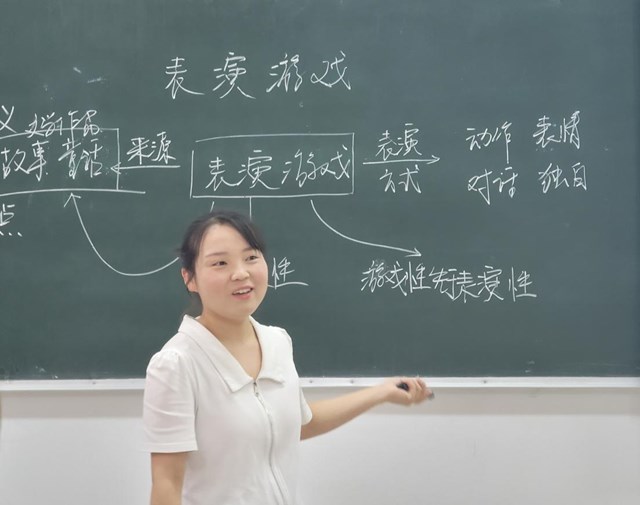 表演游戏
义 文学作品
故事 童话
来源
表演游戏
表演
方式
动作 表情
对话 独白
点
性
游戏性先于表演性